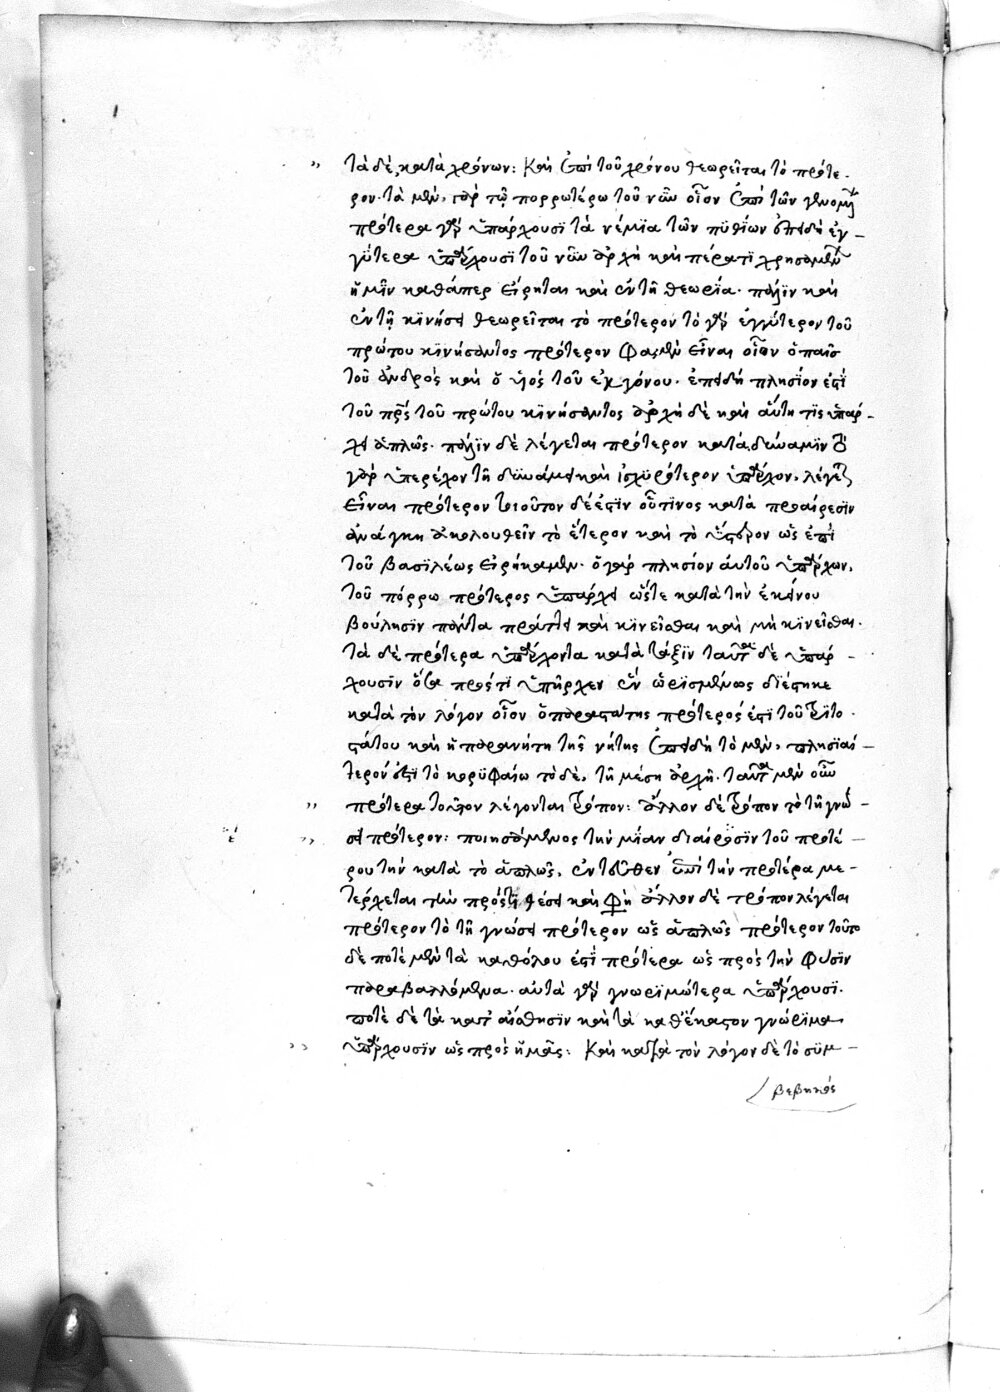 τὰ δὲ κατὰ χρόνων: Καὶ ἐπὶ τοῦ χρόνου θεωρεῖται τὸ πρότε-
ρον. τὰ μὲν, γὰρ τῷ πορρωτέρω τοῦ νῦν οἷον ἐπὶ τῶν γενομένων
πρότερα γὰρ ὑπάρχουσι τὰ νέμϊα τῶν πϋθίων ἐπειδὴ ἐγ-
γύτερα ὑπάρχουσϊ τοῦ νῦν ἀρχῆ καὶ πέρατϊ χρησαμένων
ἡμῖν καθάπερ εἴρηται καὶ ἐν τῆ θεωρία. πάλϊν καὶ
ἐν τῇ κϊνήσει θεωρεῖται τὸ πρότερον τὸ γὰρ ἐγγύτερον τοῦ
πρώτου κινήσαντος πρότερον φαμὲν εἶναι οἷον ὁ παῖς
τοῦ ἀνδρὸς καὶ ὁ ὑὸς τοῦ ἐκγόνου. ἐπειδὴ πλησίον ἐστὶ
τοῦ πρς τοῦ πρώτου κϊνήσαντος ἀρχὴ δὲ καὶ αὕτη τὶς ὑπάρ-
χει ἁπλῶς. πάλϊν δὲ λέγεται πρότερον κατὰ δύναμϊν τὸ
γὰρ ὑπερέχον τῆ δϋνάμει καὶ ἰσχϋρότερον ὑπάρχον, λέγεται
εἶναι πρότερον τοιοῦτον δέ ἐστϊν οὗτινος κατὰ προαίρεσϊν
ἀνάγκη ἀκολουθεῖν τὸ ἕτερον καὶ τὸ ὕστερον ὡς ἐπὶ
τοῦ βασϊλέως εἰρήκαμεν. ὁ γὰρ πλησίον αὐτοῦ ὑπάρχων,
τοῦ πόρρω πρότερος ὑπάρχει ὥστε κατὰ τὴν ἐκείνου
βούλησϊν πάντα πράττει καὶ κϊνεῖσθαι καὶ μὴ κϊνεῖσθαι.
τὰ δὲ πρότερα ὑπάρχοντα κατὰ τάξϊν ταῦτα δὲ ὑπάρ-
χουσϊν ὅσα πρός τϊ ὑπῆρχεν ἓν ὡρϊσμένως δϊέστηκε
κατὰ τὸν λόγον οἷον ὁ παραστάτης πρότερός ἐστϊ τοῦ τρϊτο-
στάτου καὶ ἡ παρανήτη τῆς νήτης ἐπειδὴ τὸ μὲν, πλησϊαί-
τερόν ἐστϊ τὸ κορϋφαίω τὸ δὲ, τῆ μέση ἀρχῆ. ταῦτα μὲν οὖν
πρότερα τοῦτον λέγονται τρόπον: ἄλλον δὲ τρόπον τὸ τῆ γνώ-
σει πρότερον: ποιησάμενος τὴν μίαν διαίρεσϊν τοῦ προτέ-
ρου τὴν κατὰ τὸ ἁπλῶς, ἐντεῦθεν ἐπὶ τὴν προτέρα με-
τέρχεται τὴν πρός τϊ θέσει καὶ φησὶ ἄλλον δὲ τρόπον λέγεται
πρότερον τὸ τῆ γνώσει πρότερον ὡς ἁπλῶς πρότερον τοῦτο
δὲ ποτὲ μὲν τὰ καθόλου ἐστὶ πρότερα ὡς πρὸς τὴν φύσϊν
παραβαλλόμενα. αὐτὰ γὰρ γνωρϊμώτερα ὑπάρχουσϊ.
ποτὲ δὲ τὰ κατ' αἴσθησϊν καὶ τὰ καθ' ἕκαστον γνώρϊμα
ὑπάρχουσϊν ὡς πρὸς ἡμᾶς: Καὶ κατὰ τὸν λόγον δὲ τὸ σϋμ-
βεβηκὸς